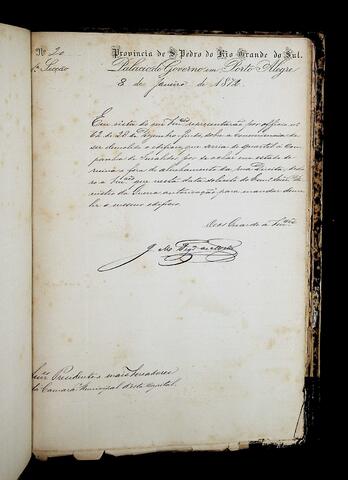 Nº 20
1ª Secção
Provincia de S. Pedro do Rio Grande do Sul.
Palacio do Governo em Porto Alegre
8 de Janeiro de 1874
Em vista do que representarão por officio nº
62 de 28 de Dezembro findo, sobre a conveniencia de
ser demolido o edificio que servia de quartel da Com-
panhia de Invalidos, por se achar em estado de
ruina e fora do alinhamento da rua Direita, decla-
ro a que nesta data solicito do Exmo. Snr. Mi-
nistro da Guerra autorização para mandar demo-
lir o mesmo edificio.
Deos Guarde a
Snrs. Presidente e mais Vereadores
da Camara Municipal desta Capital.